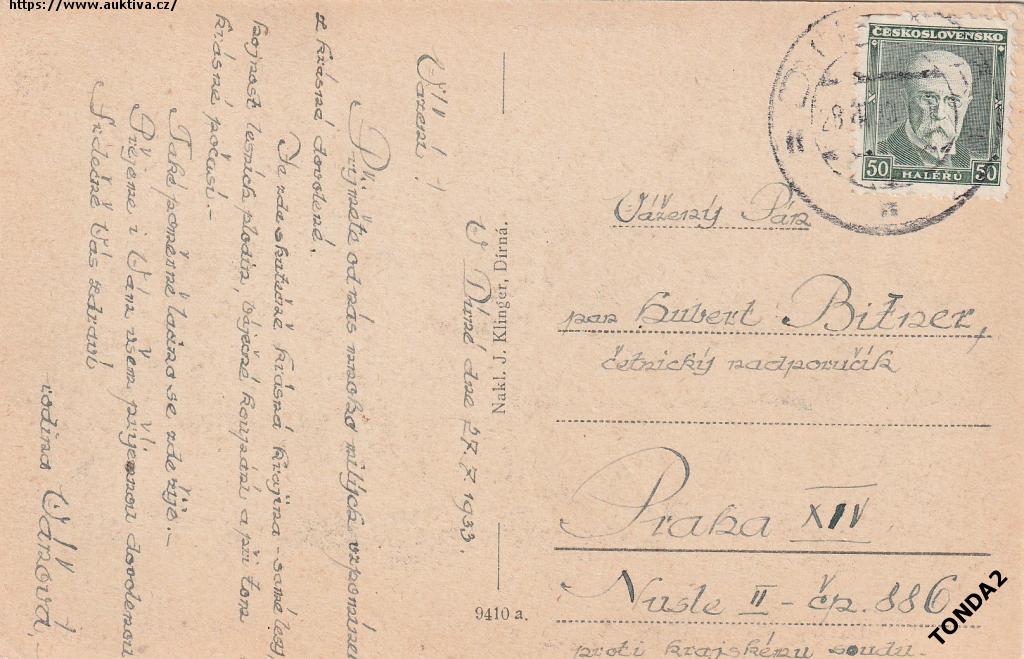 https://www.auktiva.cz/
V Dírné dne 27.7.1933.
Vážení!
Přijměte od nás mnoho milých vzpomínek
z krásné dovolené.
Je zde skutečně krásná krajina - samé lesy,
hojnost lesních plodin, báječné koupání a při tom
krásné počasí.-
Také poměrně lacino se zde žije.-
Přejeme i Vám všem příjemnou dovolenou
Srdečně Vás zdraví
rodina Váňova.-
Nakl. J. Klinger, Dírná.
9410 a.
ČESKOSLOVENSKO
50 HALÉŘŮ 50
28
Vážený Pán
pan Hubert Bitner,
četnický nadporučík
Praha XIV
Nusle II - čp. 886
proti krajskému soudu.-
TONDA2